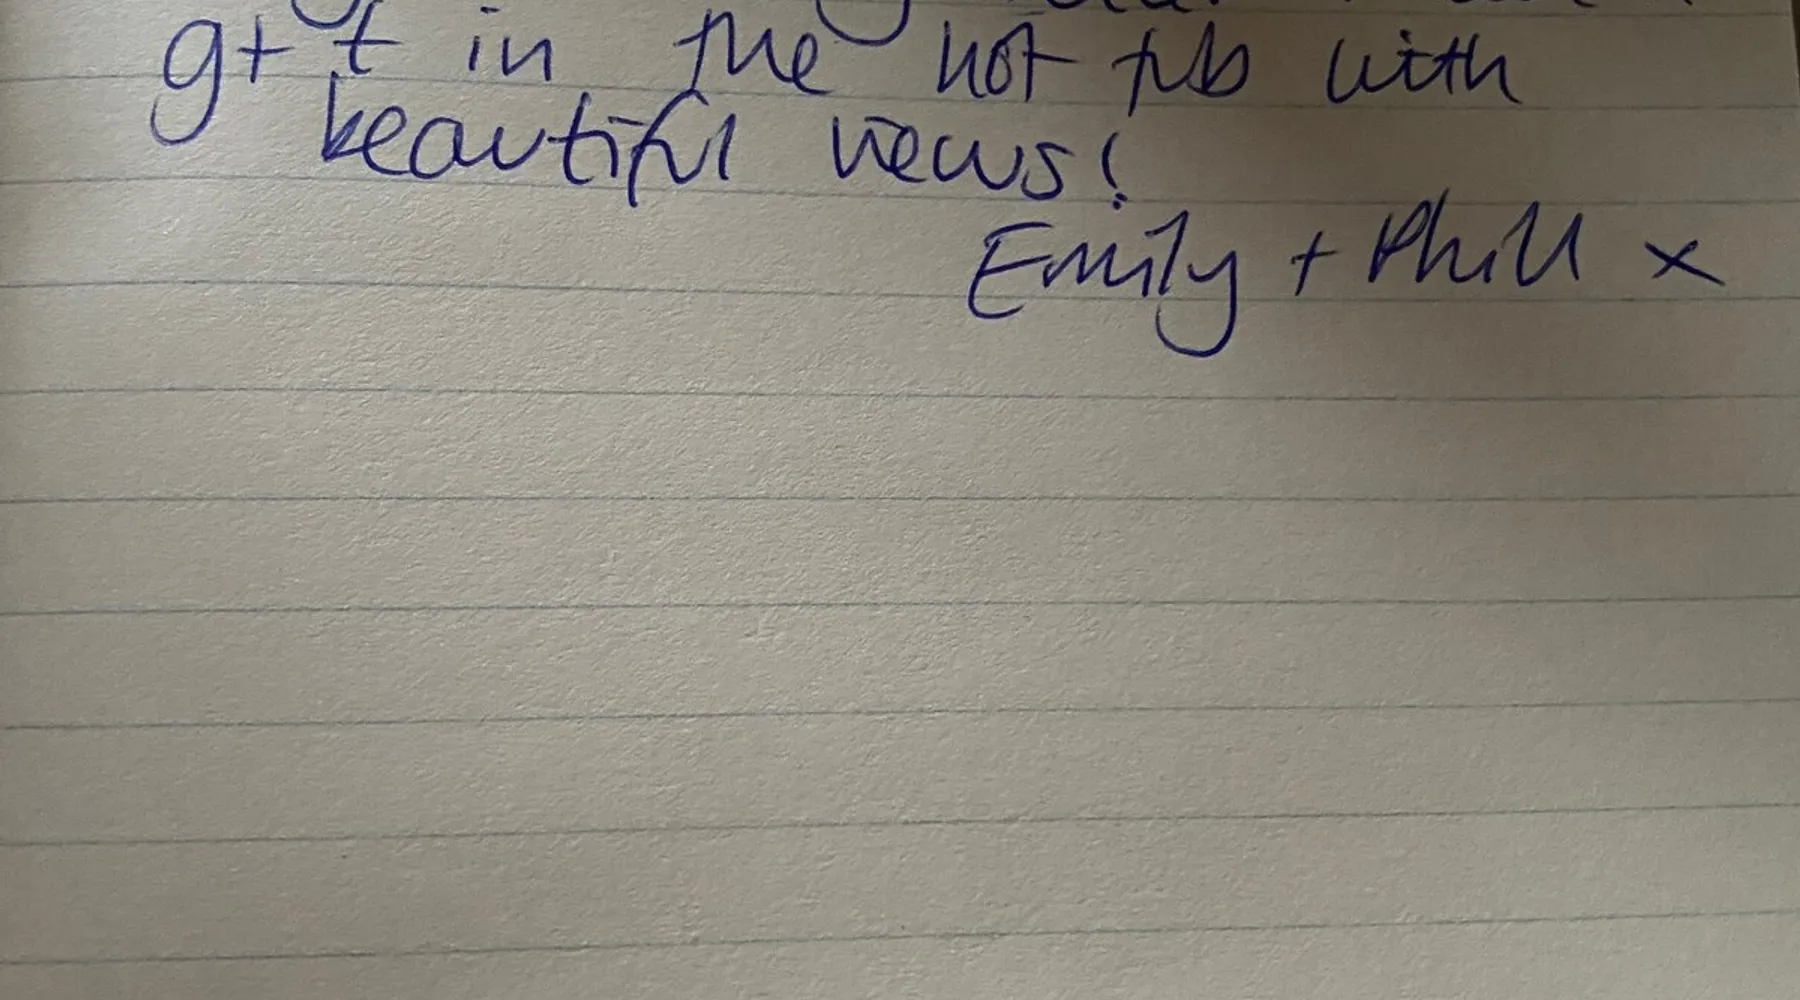 g+t in the hot tub with
beautiful views!
Emily + Phill x